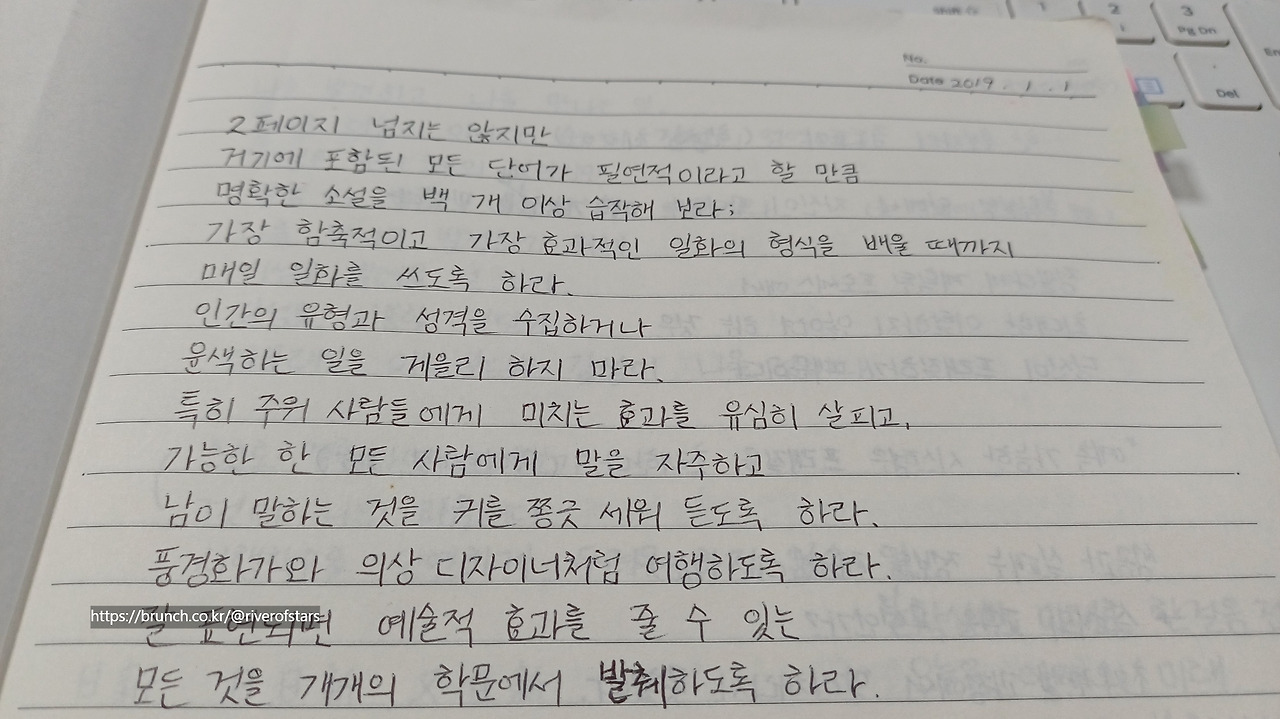 Shift
1
2
3
Pg Dn
Del
No.
Date 2019 . 1 . 1
2페이지 넘지는 않지만
거기에 포함된 모든 단어가 필연적이라고 할 만큼
명확한 소설을 백 개 이상 습작해 보라;
가장 함축적이고 가장 효과적인 일화의 형식을 배울 때까지
매일 일화를 쓰도록 하라.
인간의 유형과 성격을 수집하거나
윤색하는 일을 게을리 하지 마라.
특히 주위 사람들에게 미치는 효과를 유심히 살피고,
가능한 한 모든 사람에게 말을 자주하고
남이 말하는 것을 귀를 쫑긋 세워 듣도록 하라.
풍경화가와 의상 디자이너처럼 여행하도록 하라.
https://brunch.co.kr/@riverofstars
잘 표현되면 예술적 효과를 줄 수 있는
모든 것을 개개의 학문에서 발췌하도록 하라.